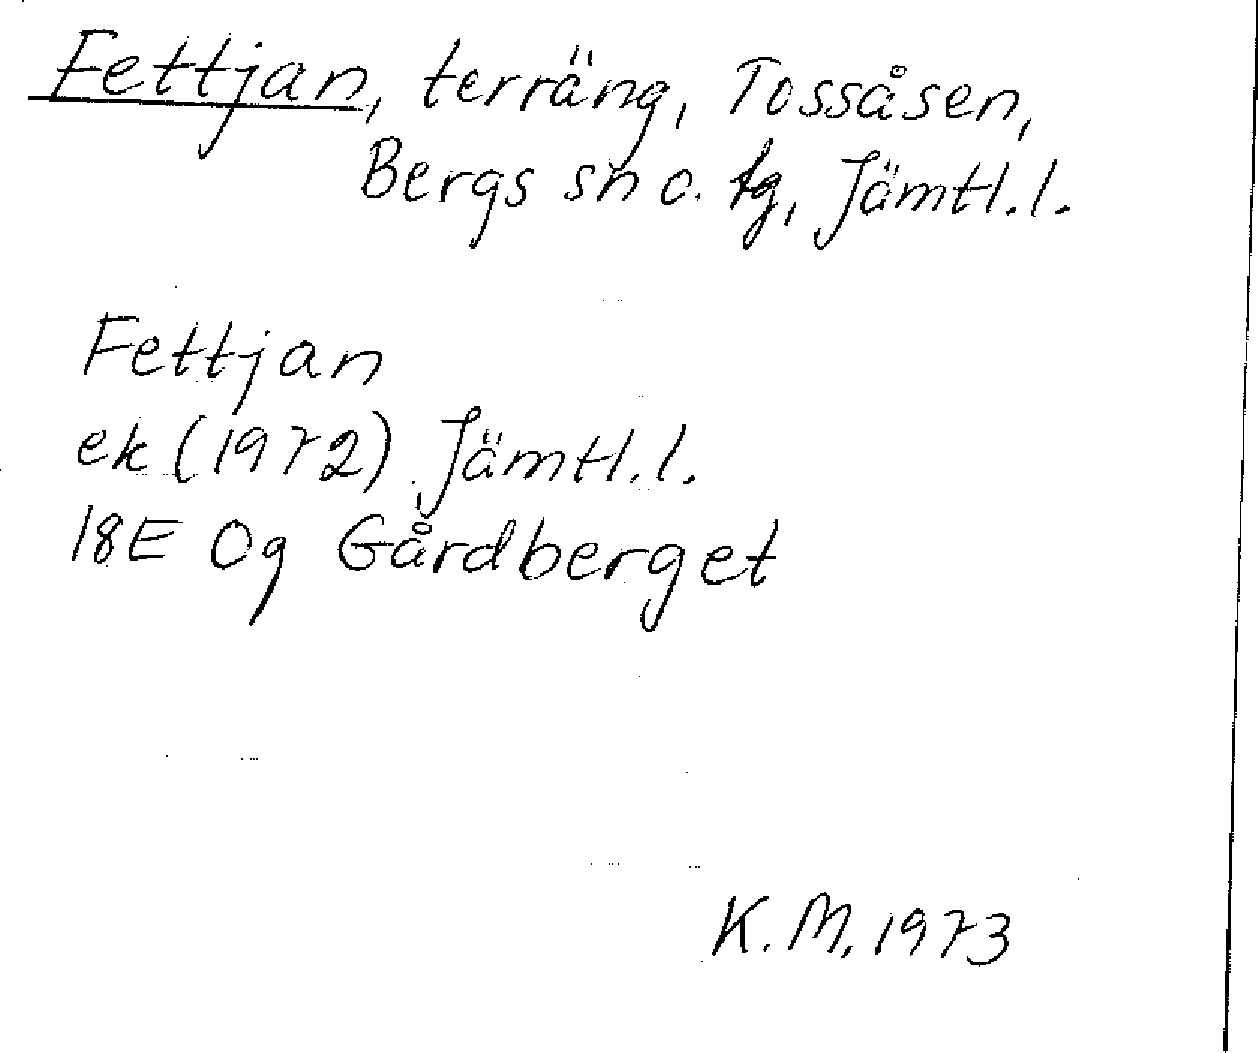 Fettjan, terräng, Tossåsen,
Bergs sn o. tg, Jämtl.l.
Fettjan
ek (1972) Jämtl.l.
18E 0g Gårdberget
K.M. 1973